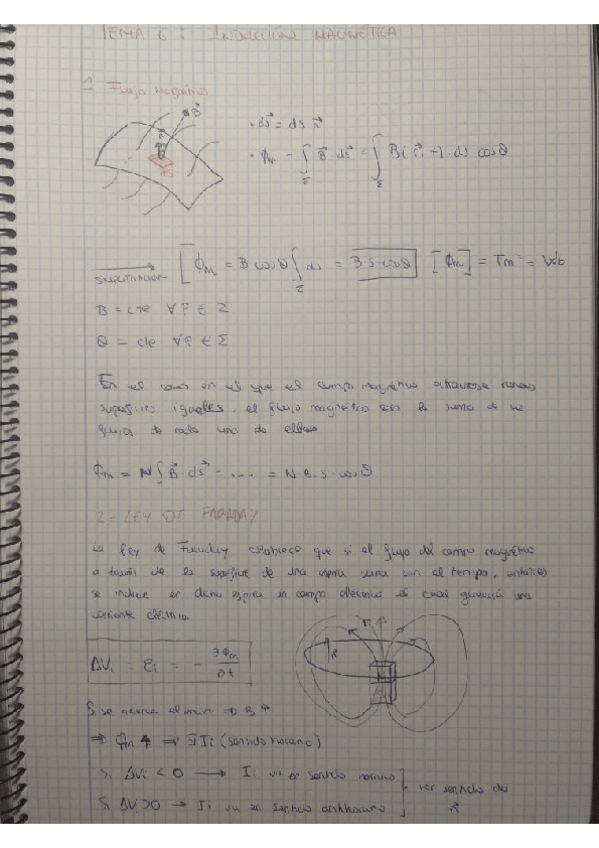 TEMA 6: INDUCCIÓN MAGNÉTICA
1 Flujo Magnético
B⃗
dS
• ds⃗ = ds n⃗
• ϕm = ∫Σ B⃗ · ds⃗ = ∫Σ B(r⃗, t) ds cosθ
[ϕM = B cosθ ∫Σ ds = B·S·cosθ [ϕm] = Tm² = Wb
B = cte ∀ r⃗ ∈ Σ
θ = cte ∀ r⃗ ∈ Σ
En el caso en el que el campo magnético atraviese varias
superficies iguales, el flujo magnético será la suma de los
flujos de cada una de ellas
ϕm = N ∫ B⃗ · ds⃗ = .... = N B·S·cosθ
2- LEY DE FARADAY
La ley de Faraday establece que si el flujo del campo magnético
a través de la superficie de una espira varía con el tiempo, entonces
se induce en dicha espira un campo eléctrico el cual generará una
corriente eléctrica.
ΔVi = εi = - ∂ϕm/∂t
R
Si se acerca el imán → B ↑
⇒ ϕm ↑ ⇒ ∃ Ii (sentido horario)
Si ΔVi < 0 → Ii va en sentido horario
Si ΔVi > 0 → Ii va en sentido antihorario
ver sentido de